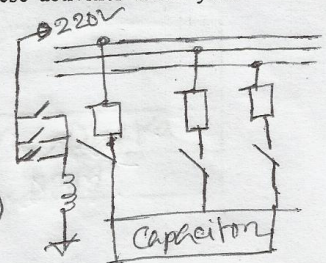 220V
Capaciton